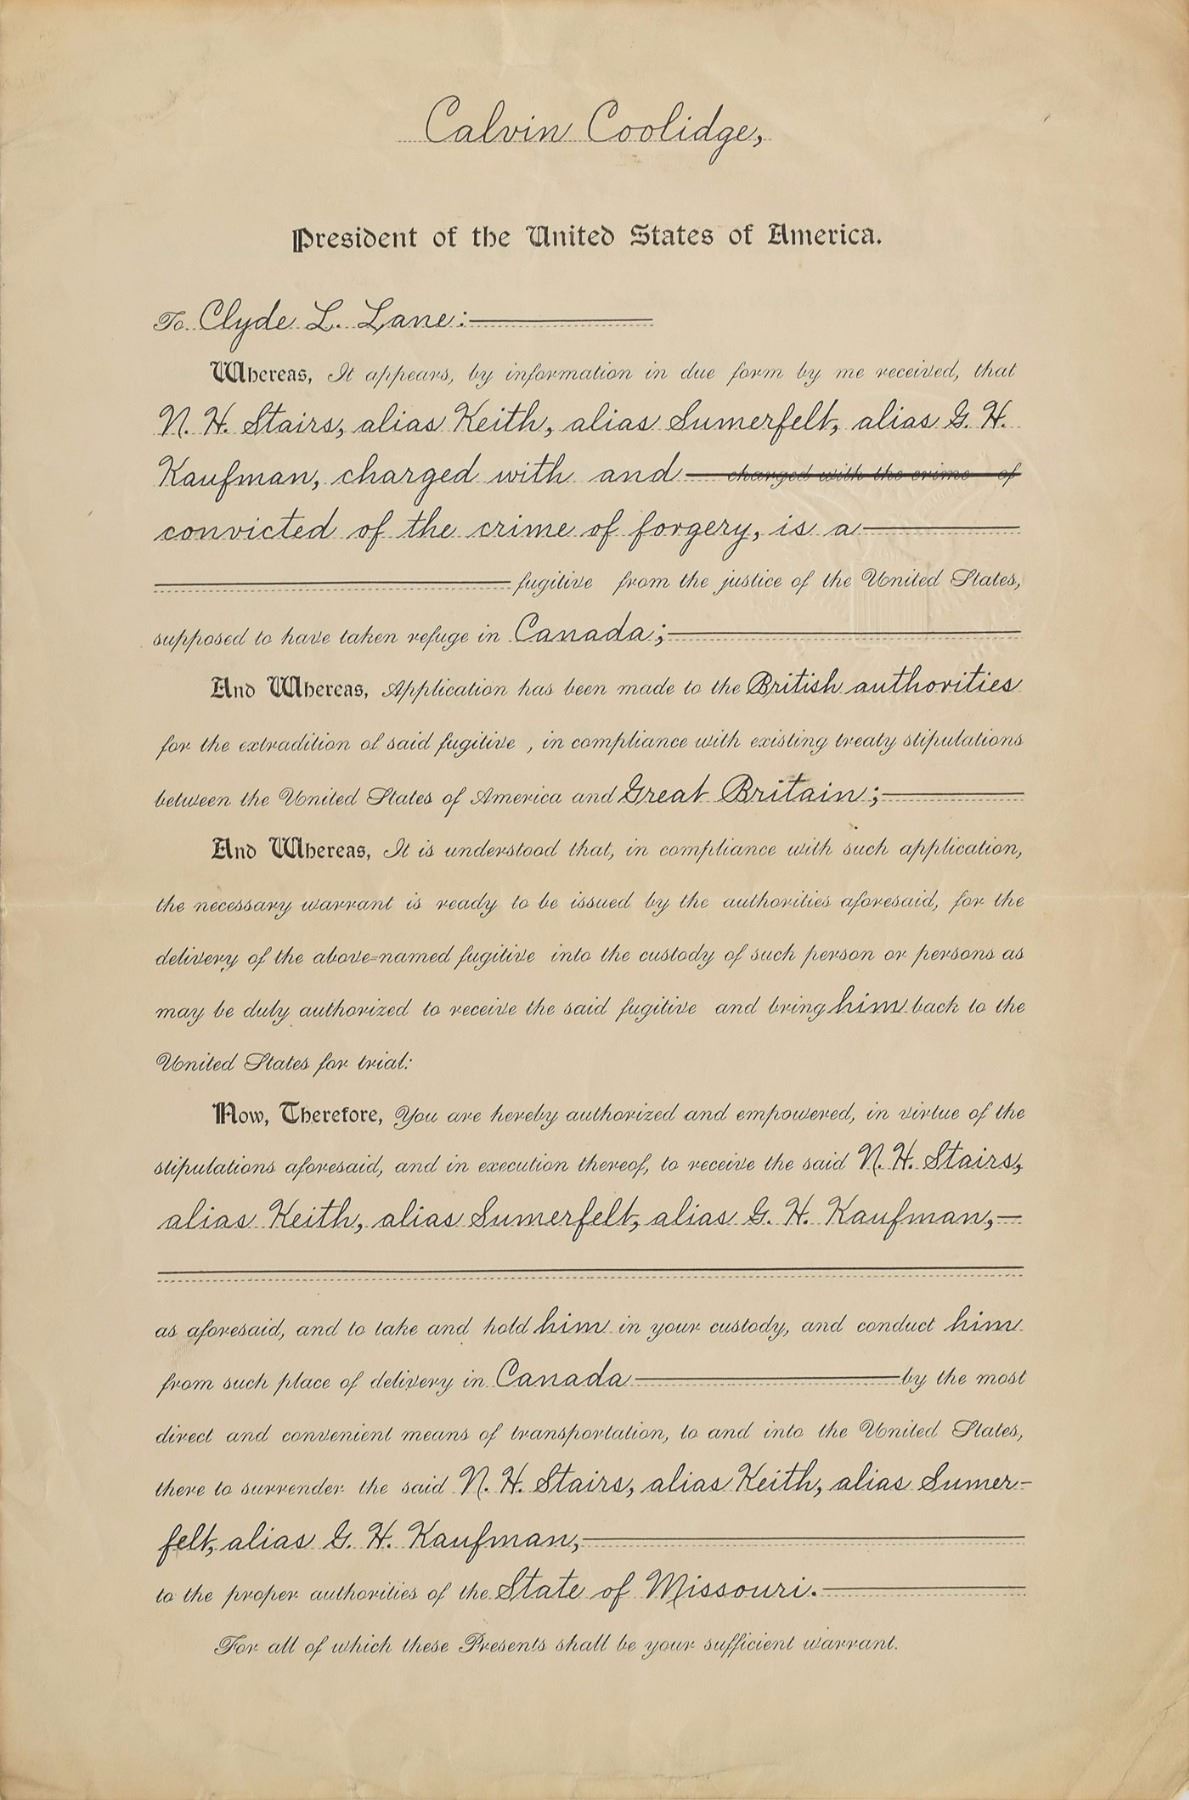 Calvin Coolidge,
President of the United States of America.
To Clyde L. Lane:
Whereas, It appears, by information in due form by me received, that
N. H. Stairs, alias Keith, alias Sumerfelt, alias G. H.
Kaufman, charged with and charged with the crime of
convicted of the crime of forgery, is a
fugitive from the justice of the United States,
supposed to have taken refuge in Canada;
And Whereas, Application has been made to the British authorities
for the extradition of said fugitive , in compliance with existing treaty stipulations
between the United States of America and Great Britain;
And Whereas, It is understood that, in compliance with such application,
the necessary warrant is ready to be issued by the authorities aforesaid, for the
delivery of the above=named fugitive into the custody of such person or persons as
may be duly authorized to receive the said fugitive and bring him back to the
United States for trial:
Now, Therefore, You are hereby authorized and empowered, in virtue of the
stipulations aforesaid, and in execution thereof, to receive the said N. H. Stairs,
alias Keith, alias Sumerfelt, alias G. H. Kaufman,
as aforesaid, and to take and hold him in your custody, and conduct him
from such place of delivery in Canada by the most
direct and convenient means of transportation, to and into the United States,
there to surrender the said N. H. Stairs, alias Keith, alias Sumer-
felt, alias G. H. Kaufman,
to the proper authorities of the State of Missouri.
For all of which these Presents shall be your sufficient warrant.